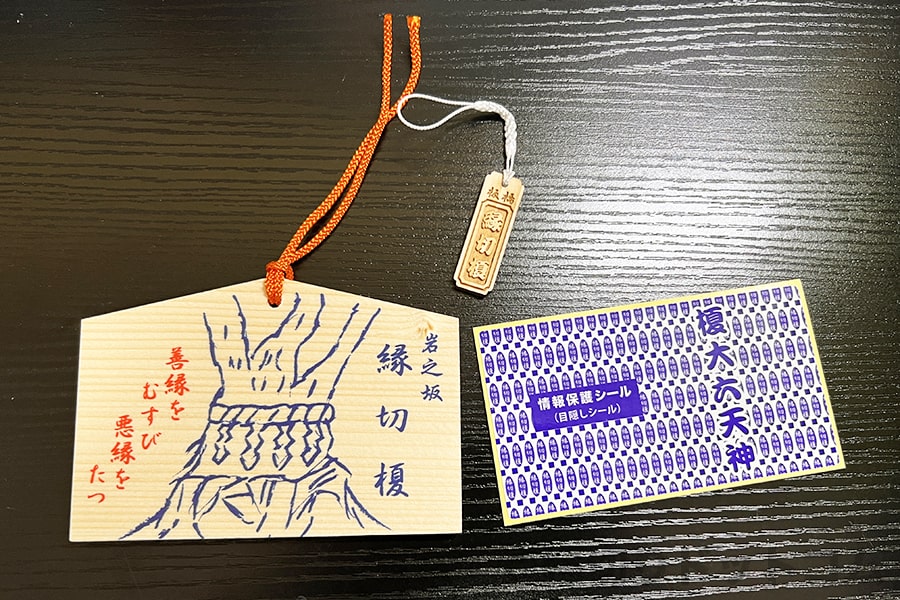 岩之坂
縁切榎
善縁を
むすび
悪縁を
たつ
板橋
縁切榎
榎大六天神
情報保護シール
(目隠しシール)